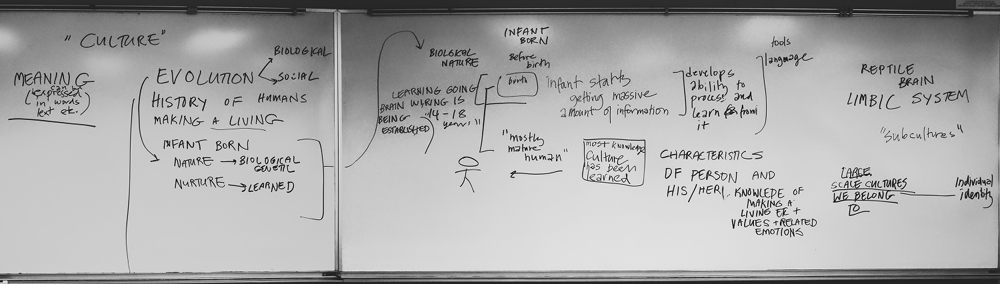 "CULTURE"
MEANING
can be
(expressed
in words
text etc.)
EVOLUTION
BIOLOGICAL
SOCIAL
HISTORY OF HUMANS
MAKING A LIVING
INFANT BORN
NATURE → BIOLOGICAL
GENETIC
NURTURE → LEARNED
BIOLOGICAL
NATURE
LEARNING GOING
BRAIN WIRING IS
BEING
ESTABLISHED
"14-18
years"
INFANT
BORN
Before
birth
birth
Infant starts
getting massive
amount of information
develops
ability to
process and
learn from
it
tools
language
"mostly
mature
human"
most knowledge
Culture
has been
learned
CHARACTERISTICS
OF PERSON AND
HIS/HER
KNOWLEDE OF
MAKING A
LIVING
VALUES + RELATED
EMOTIONS
REPTILE
BRAIN
LIMBIC SYSTEM
"subcultures"
LARGE
SCALE CULTURES
WE BELONG
TO
Individual
identity